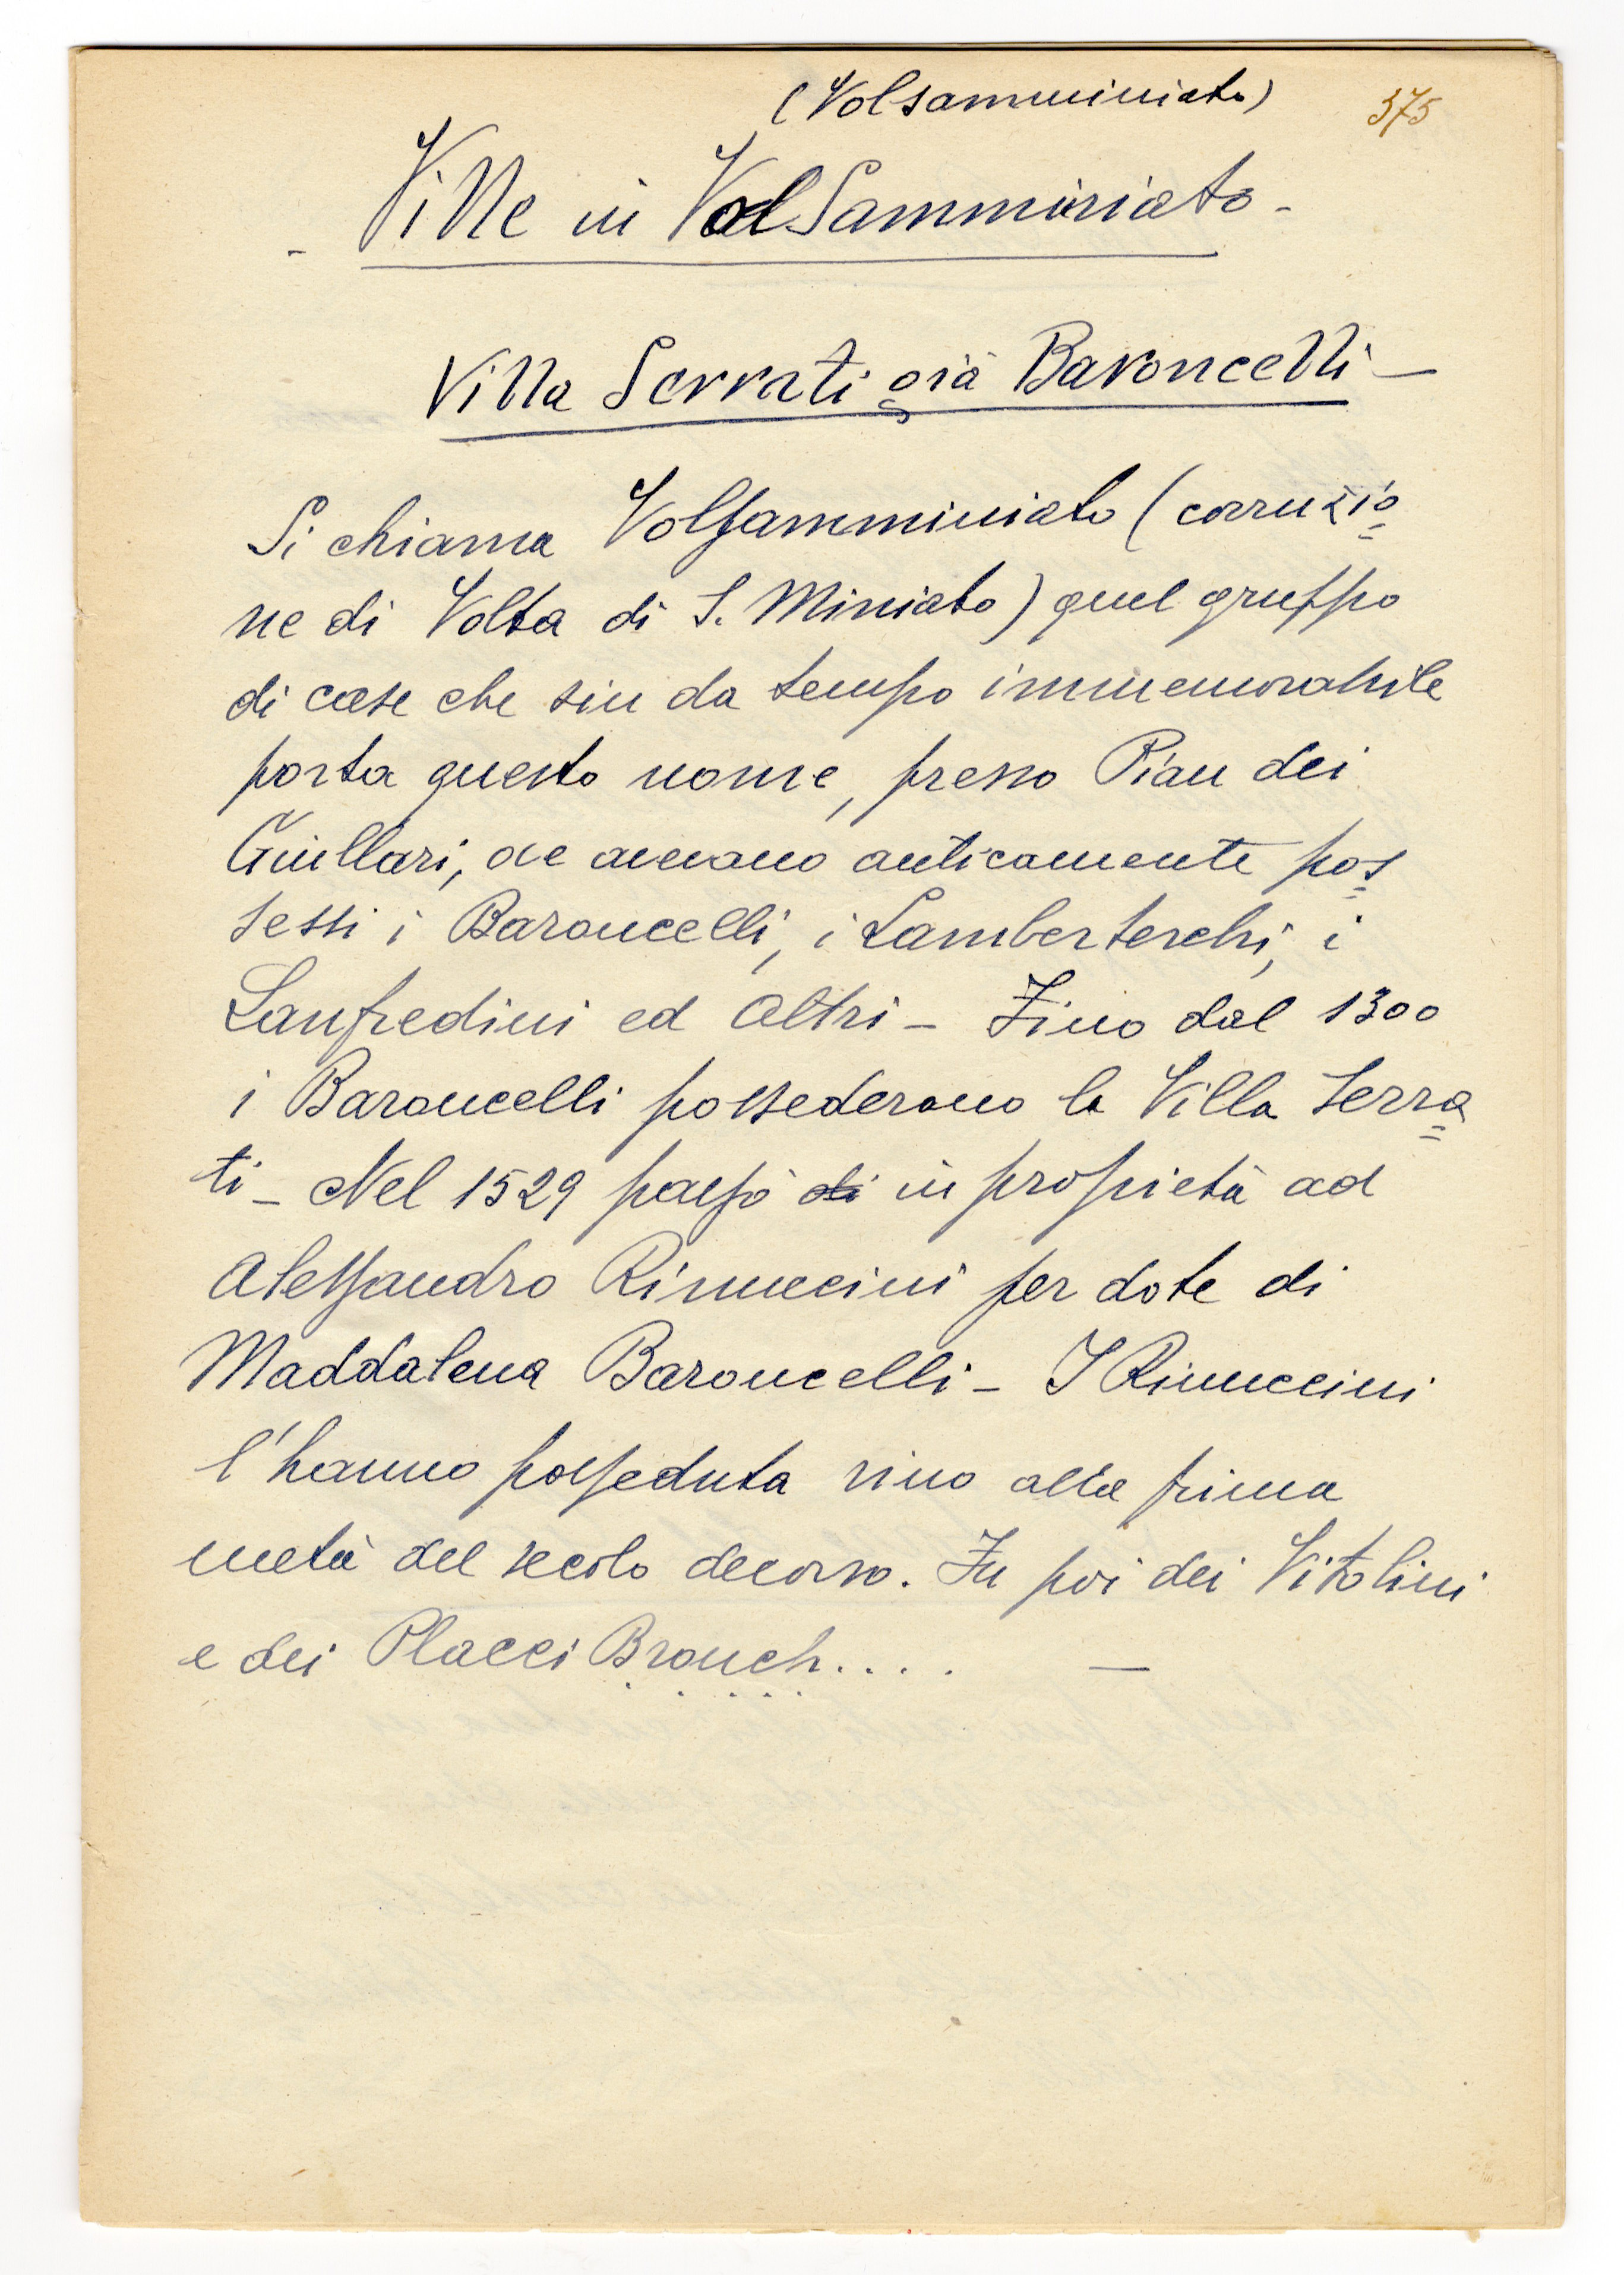 (Volsamminiato) 375
- Ville in Val Samminiato -
Villa Serrati già Baroncelli -
Si chiama Volsamminiato (corruzio=
ne di Volta di S. Miniato) quel gruppo
di case che sin da tempo immemorabile
porta questo nome, presso Pian dei
Giullari, ove avevano anticamente pos=
sessi i Baroncelli, i Lamberteschi, i
Lanfredini ed altri - Fino dal 1300
i Baroncelli possederono la Villa Serra=
ti - Nel 1529 passò di in proprietà ad
Alessandro Rinuccini per dote di
Maddalena Baroncelli - I Rinuccini
l'hanno posseduta sino alla prima
metà del secolo decorso. Fu poi dei Vitolini
e dei Placci Brouch.... —